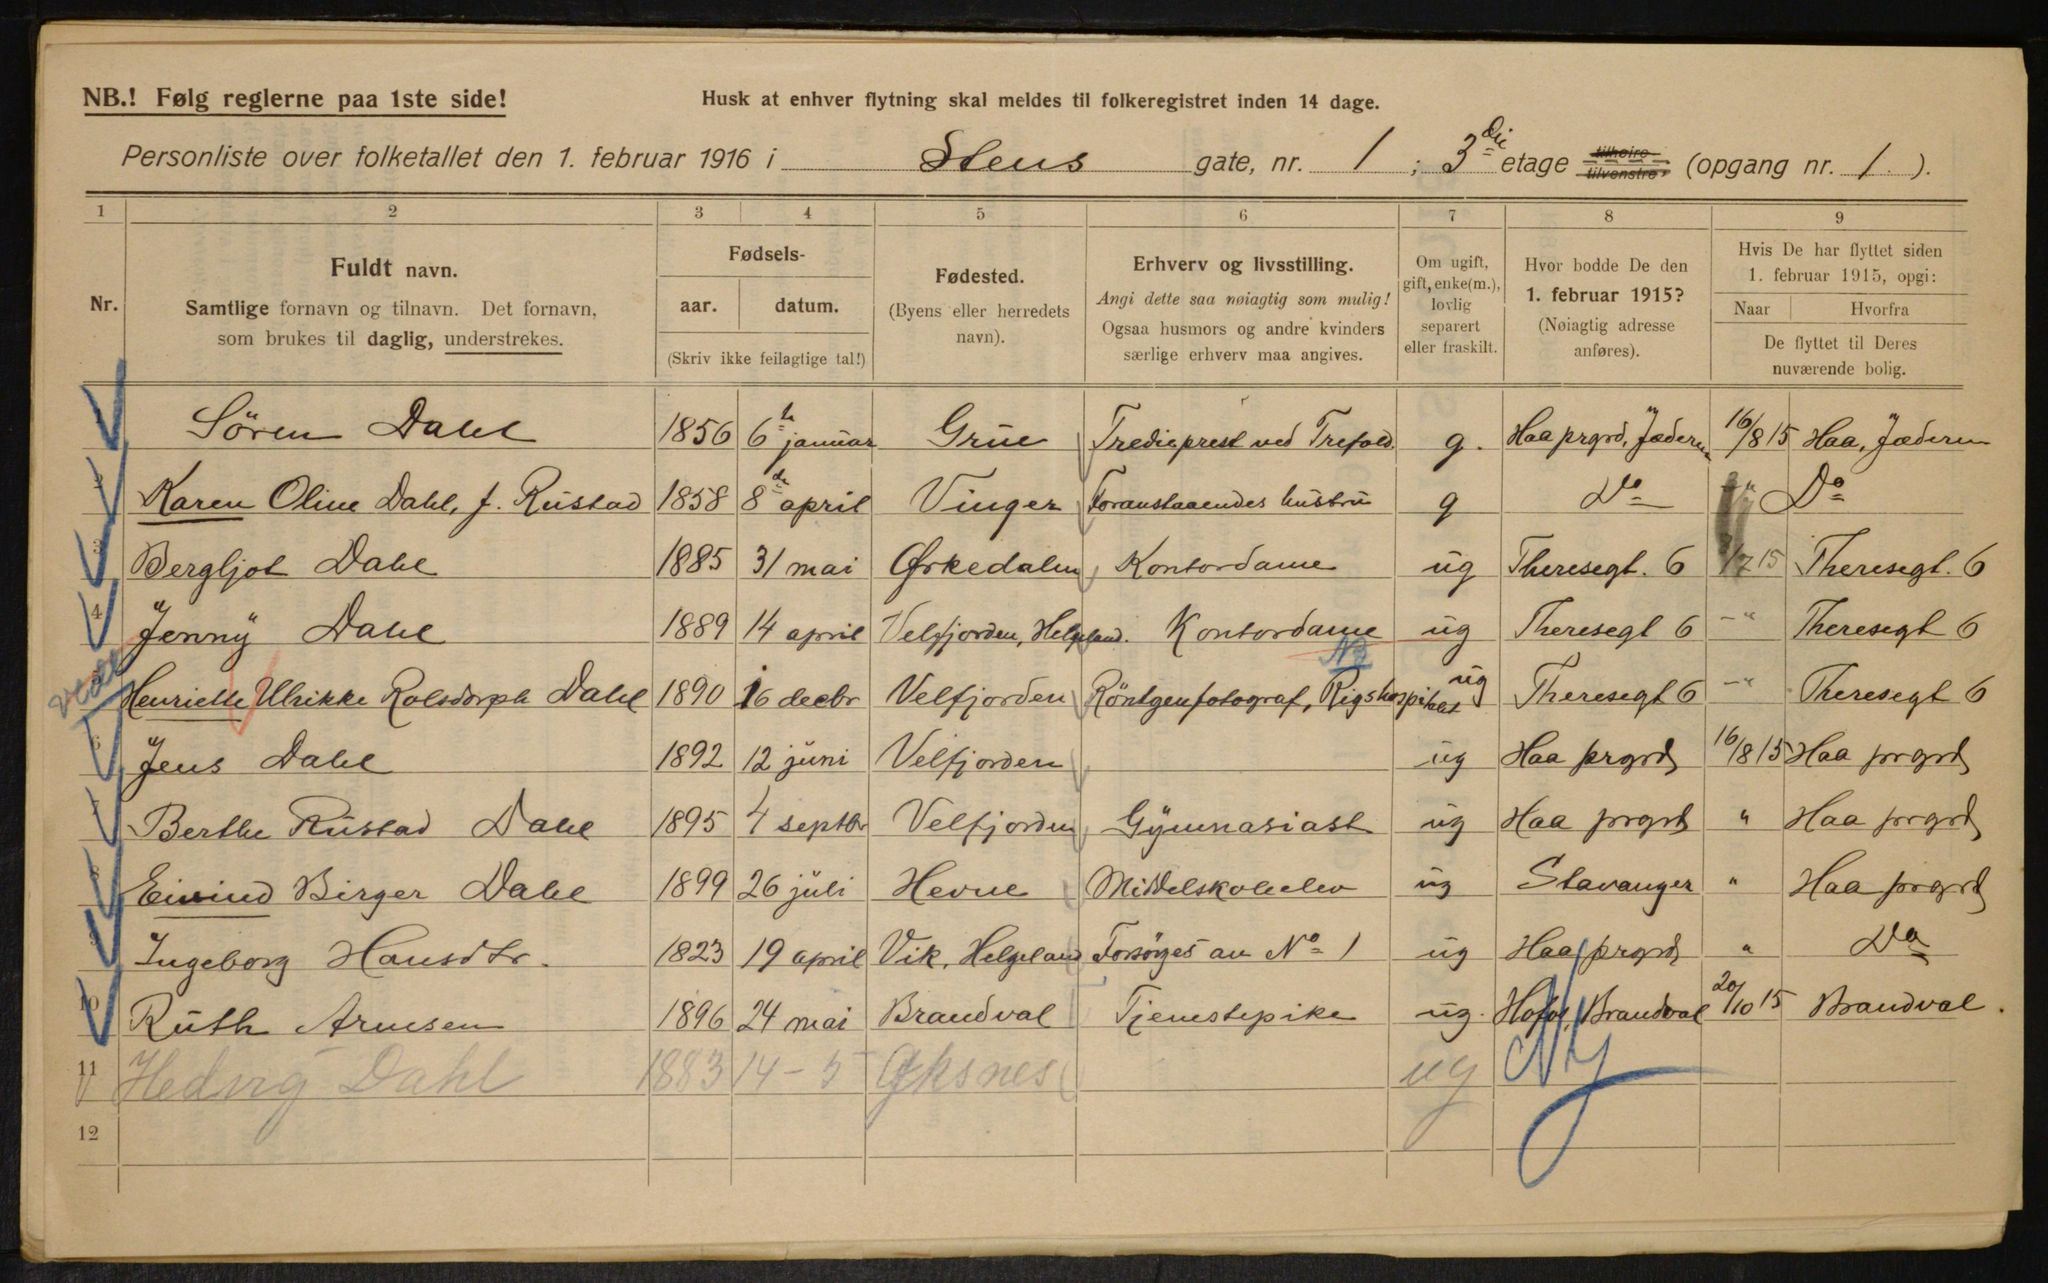 NB.! Følg reglerne paa 1ste side!
Husk at enhver flytning skal meldes til folkeregistret inden 14 dage.
Personliste over folketallet den 1. februar 1916 i Stens gate, nr. 1 ; 3die etage tilhøire tilvenstre, (opgang nr. 1 ).
1 2 3 4 5 6 7 8 9
Nr.
Fuldt navn.
Samtlige fornavn og tilnavn. Det fornavn,
som brukes til daglig, understrekes.
Fødsels-
aar. datum.
(Skriv ikke feilagtige tal!)
Fødested.
(Byens eller herredets
navn).
Erhverv og livsstilling.
Angi dette saa nøiagtig som mulig!
Ogsaa husmors og andre kvinders
særlige erhverv maa angives.
Om ugift,
gift, enke(m.),
lovlig
separert
eller fraskilt.
Hvor bodde De den
1. februar 1915?
(Nøiagtig adresse
anføres).
Hvis De har flyttet siden
1. februar 1915, opgi:
Naar Hvorfra
De flyttet til Deres
nuværende bolig.
Sören Dahl 1856 6te januar Grue Tredieprest ved Trefold. g. Haa prgrd, Jæderen 16/8 15 Haa, Jæderen
Karen Oline Dahl, f. Rustad 1858 8de april Vinger Foranstaaendes hustru g Do " Do
3 Bergljot Dahl 1885 31 mai Ørkedalen Kontordame ug Theresegt. 6 15 Theresegt. 6
4 Jenny Dahl 1889 14 april Velfjorden, Helgeland. Kontordame ug Theresegt 6 -"- Theresegt 6
NB
Henriette Ulrikke Rolsdorph Dahl 1890 16 decbr Velfjorden Röntgenfotograf, Rigshospitalet ug Theresegt 6 -"- Theresegt 6
6 Jens Dahl 1892 12 juni Velfjorden ug Haa prgrd 16/8 15 Haa prgrd
7 Berthe Rustad Dahl 1895 4 septbr Velfjorden Gymnasiast ug Haa prgrd " Haa prgrd
8 Eivind Birger Dahl 1899 26 juli Hevne Middelskoleelev ug Stavanger " Haa prgrd
9 Ingeborg Hansdtr. 1823 19 april Vik, Helgeland Forsörges av No 1 ug Haa prgrd " Do
10 Ruth Arnesen 1896 24 mai Brandval Tjenestepike ug. Hofos, Brandval 20/10 15 Brandval.
11 Hedvig Dahl 1883 14-5 Øksnes ug Ny
12